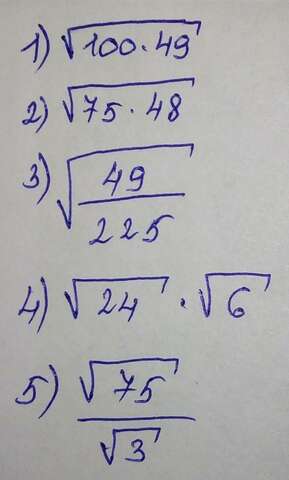 1) √100·49
2) √75·48
3) √49/225
4) √24 · √6
5) √75/√3